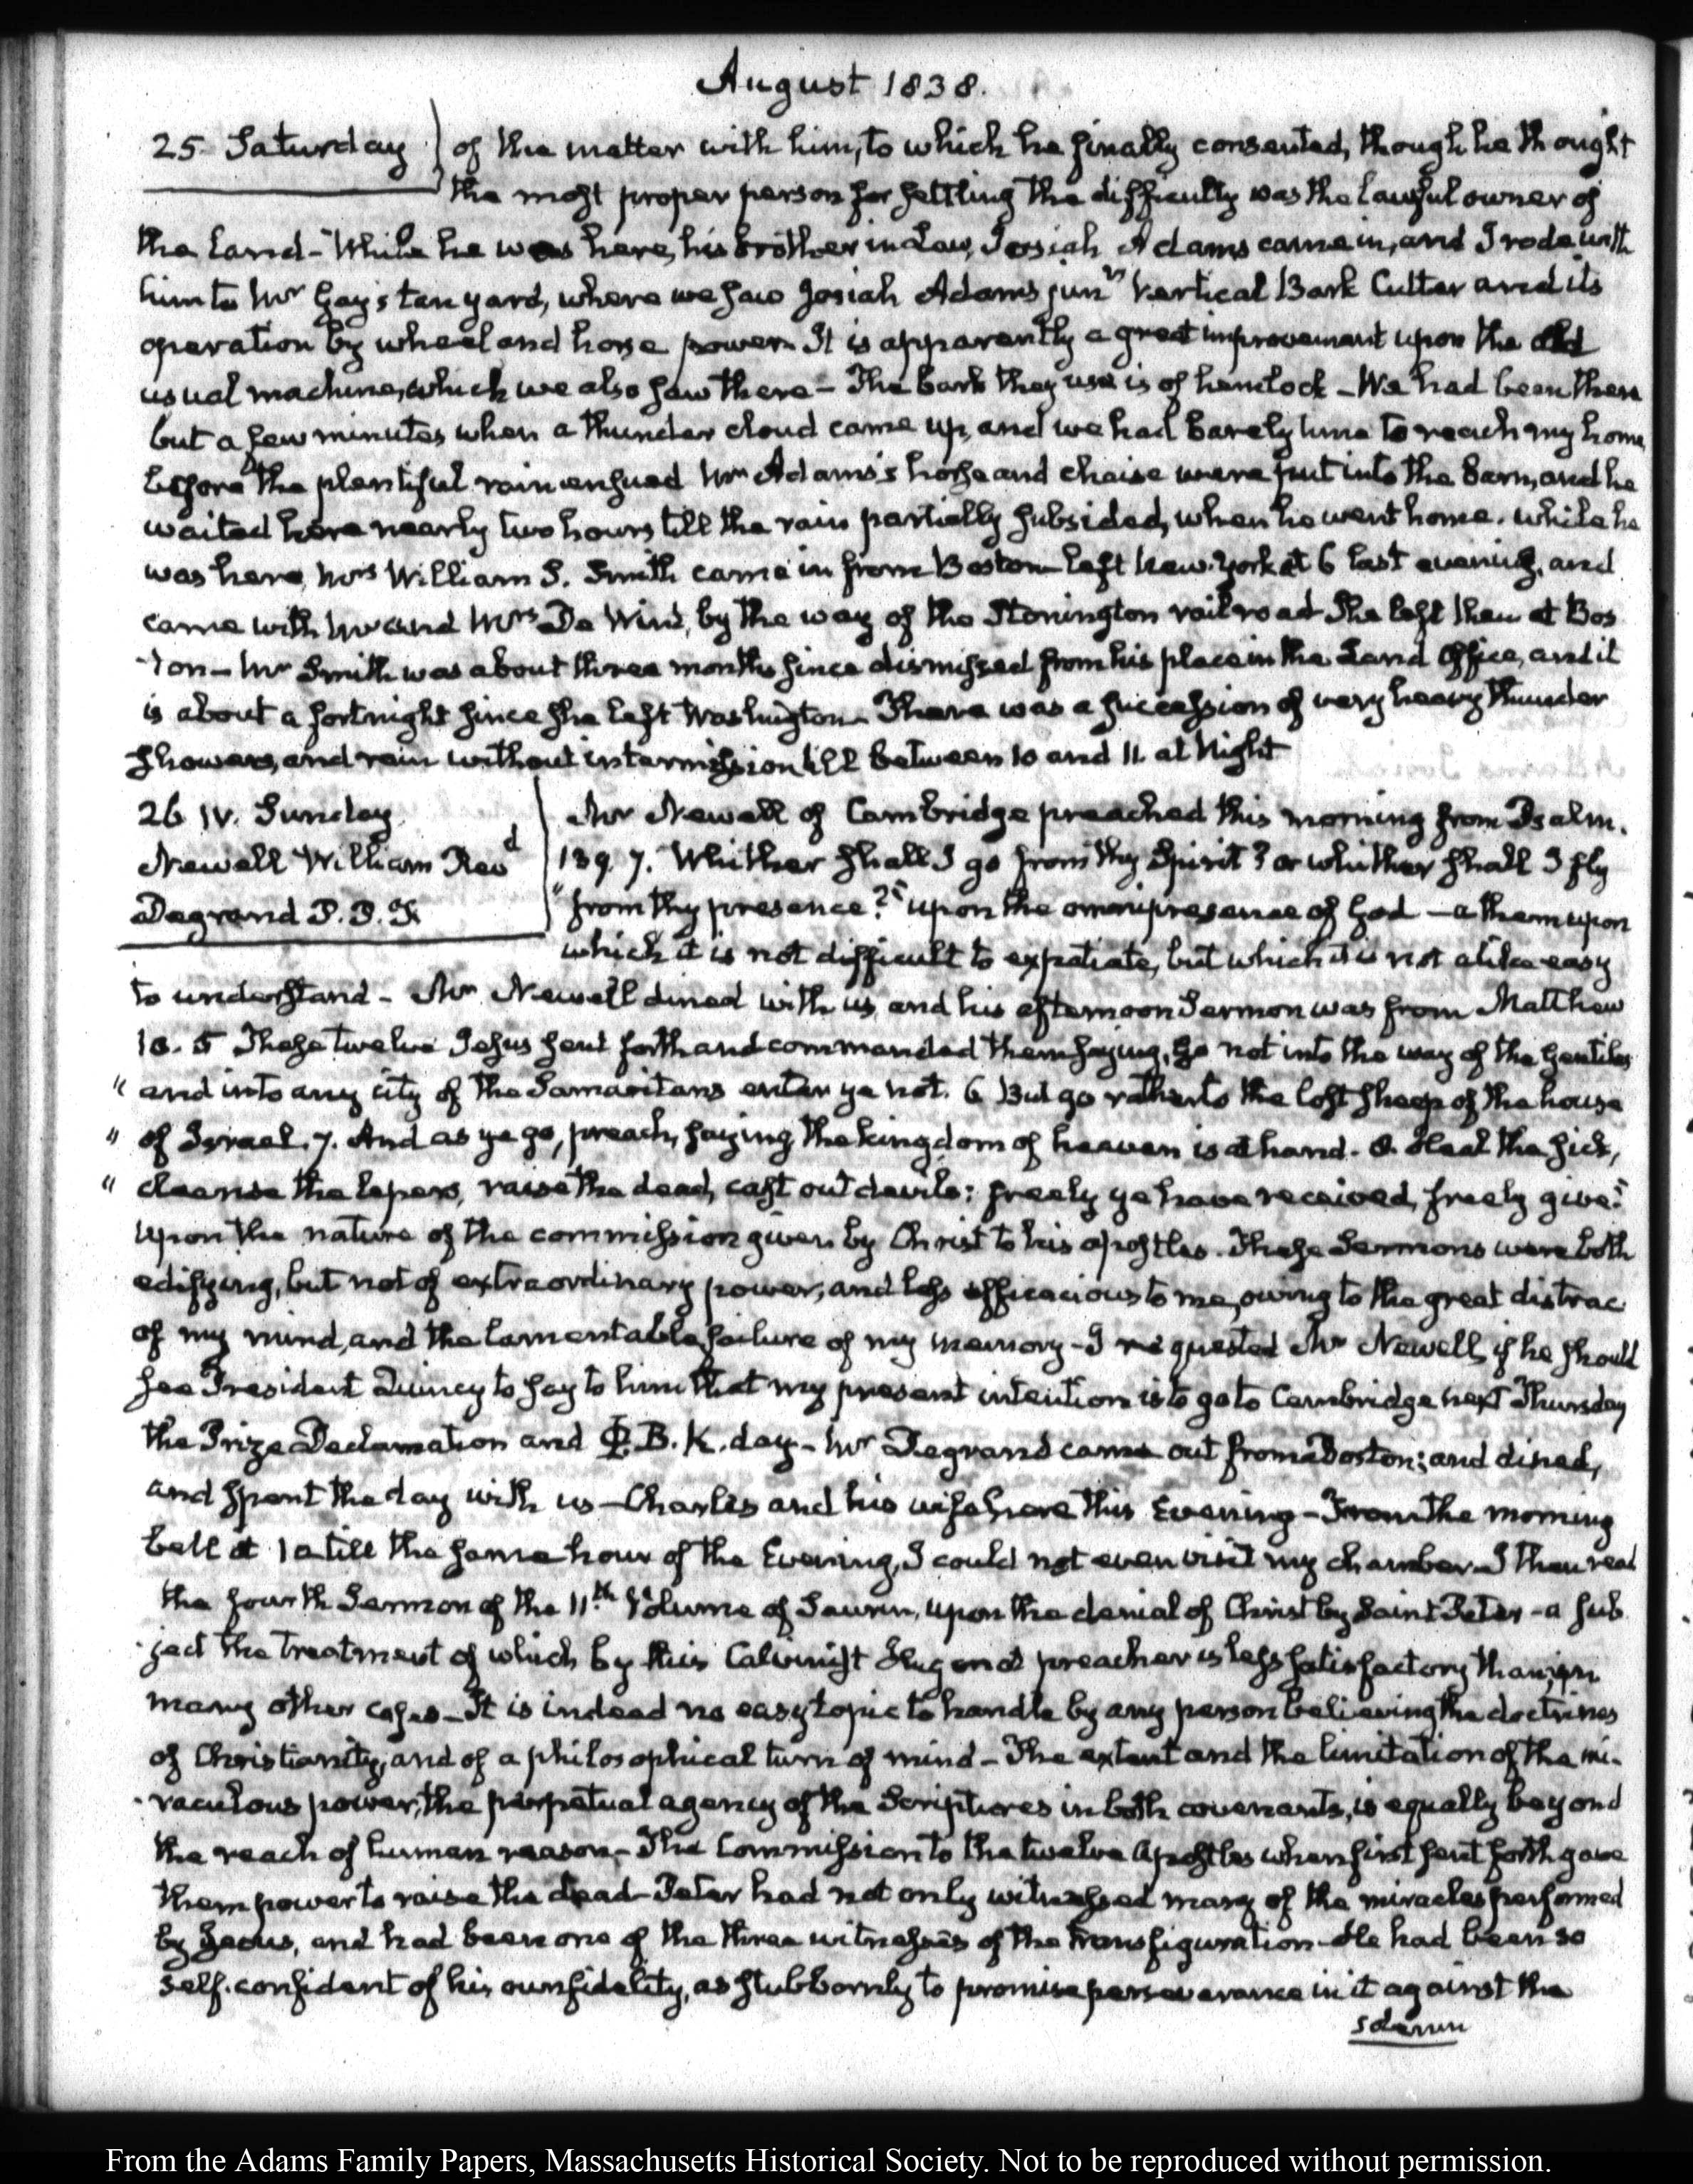 August 1838.
25. Saturday
of the matter with him, to which he finally consented, though he thought
the most proper person for settling the difficulty was the lawful owner of
the land - While he was here, his brother in Law, Josiah Adams came in, and I rode with
him to Mr Gay's tan yard, where we saw Josiah Adams junr's Vertical Bark Cutter and its
operation by wheel and horse power. It is apparently a great improvement upon the old
usual machine, which we also saw there - The bark they use is of hemlock - We had been there
but a few minutes when a thunder cloud came up, and we had barely time to reach my home
before the plentiful rain ensued Mr Adams's horse and chaise were put into the barn, and he
waited here nearly two hours till the rain partially subsided, when he went home. While he
was here, Mrs William S. Smith came in from Boston - left New-York at 6 last evening, and
came with Mr and Mrs De Wint, by the way of the Stonington railroad She left them at Bos
-ton - Mr Smith was about three months since dismissed from his place in the Land Office, and it
is about a fortnight since she left Washington - There was a succession of very heavy thunder
showers, and rain without intermission till between 10 and 11. at Night
26 IV. Sunday
Newell William Revd
Degrand P. P. F.
Mr Newell of Cambridge preached this morning from Psalm.
139. 7. "Whither shall I go from thy Spirit? or whither shall I fly
"from thy presence?" upon the omnipresence of God - a theme upon
which it is not difficult to expatiate, but which it is not alike easy
to understand - Mr Newell dined with us, and his afternoon Sermon was from Matthew
10. 5 These twelve Jesus sent forth and commanded them saying, Go not into the way of the Gentiles
" and into any city of the Samaritans enter ye not. 6 But go rather to the lost sheep of the house
" of Israel. 7. And as ye go, preach, saying the kingdom of heaven is at hand. 8. Heal the sick,
" cleanse the lepers, raise the dead, cast out devils: freely ye have received, freely give."
Upon the nature of the commission given by Christ to his apostles. These Sermons were both
edifying, but not of extraordinary power, and less efficacious to me, owing to the great distrac
of my mind, and the lamentable failure of my memory - I requested Mr Newell, if he should
see President Quincy to say to him that my present intention is to go to Cambridge next Thursday
the Prize Declamation and Φ. B. K. day - Mr Degrand came out from Boston; and dined,
and spent the day with us - Charles and his wife here this Evening - From the morning
bell at 10 till the same hour of the Evening, I could not even visit my chamber - I then read
the fourth Sermon of the 11th Volume of Saurin, upon the denial of Christ by Saint Peter - a sub
-ject the treatment of which by this Calvinist Hugonot preacher is less satisfactory than in
many other cases - It is indeed no easy topic to handle by any person believing the doctrines
of Christianity, and of a philosophical turn of mind - The extent and the limitation of the mi-
-raculous power, the perpetual agency of the Scriptures in both covenants, is equally beyond
the reach of human reason - The Commission to the twelve Apostles when first sent forth gave
them power to raise the dead - Peter had not only witnessed many of the miracles performed
by Jesus, and had been one of the three witnesses of the transfiguration - He had been so
self-confident of his own fidelity, as stubbornly to promise perseverance in it against the
solemn
From the Adams Family Papers, Massachusetts Historical Society. Not to be reproduced without permission.